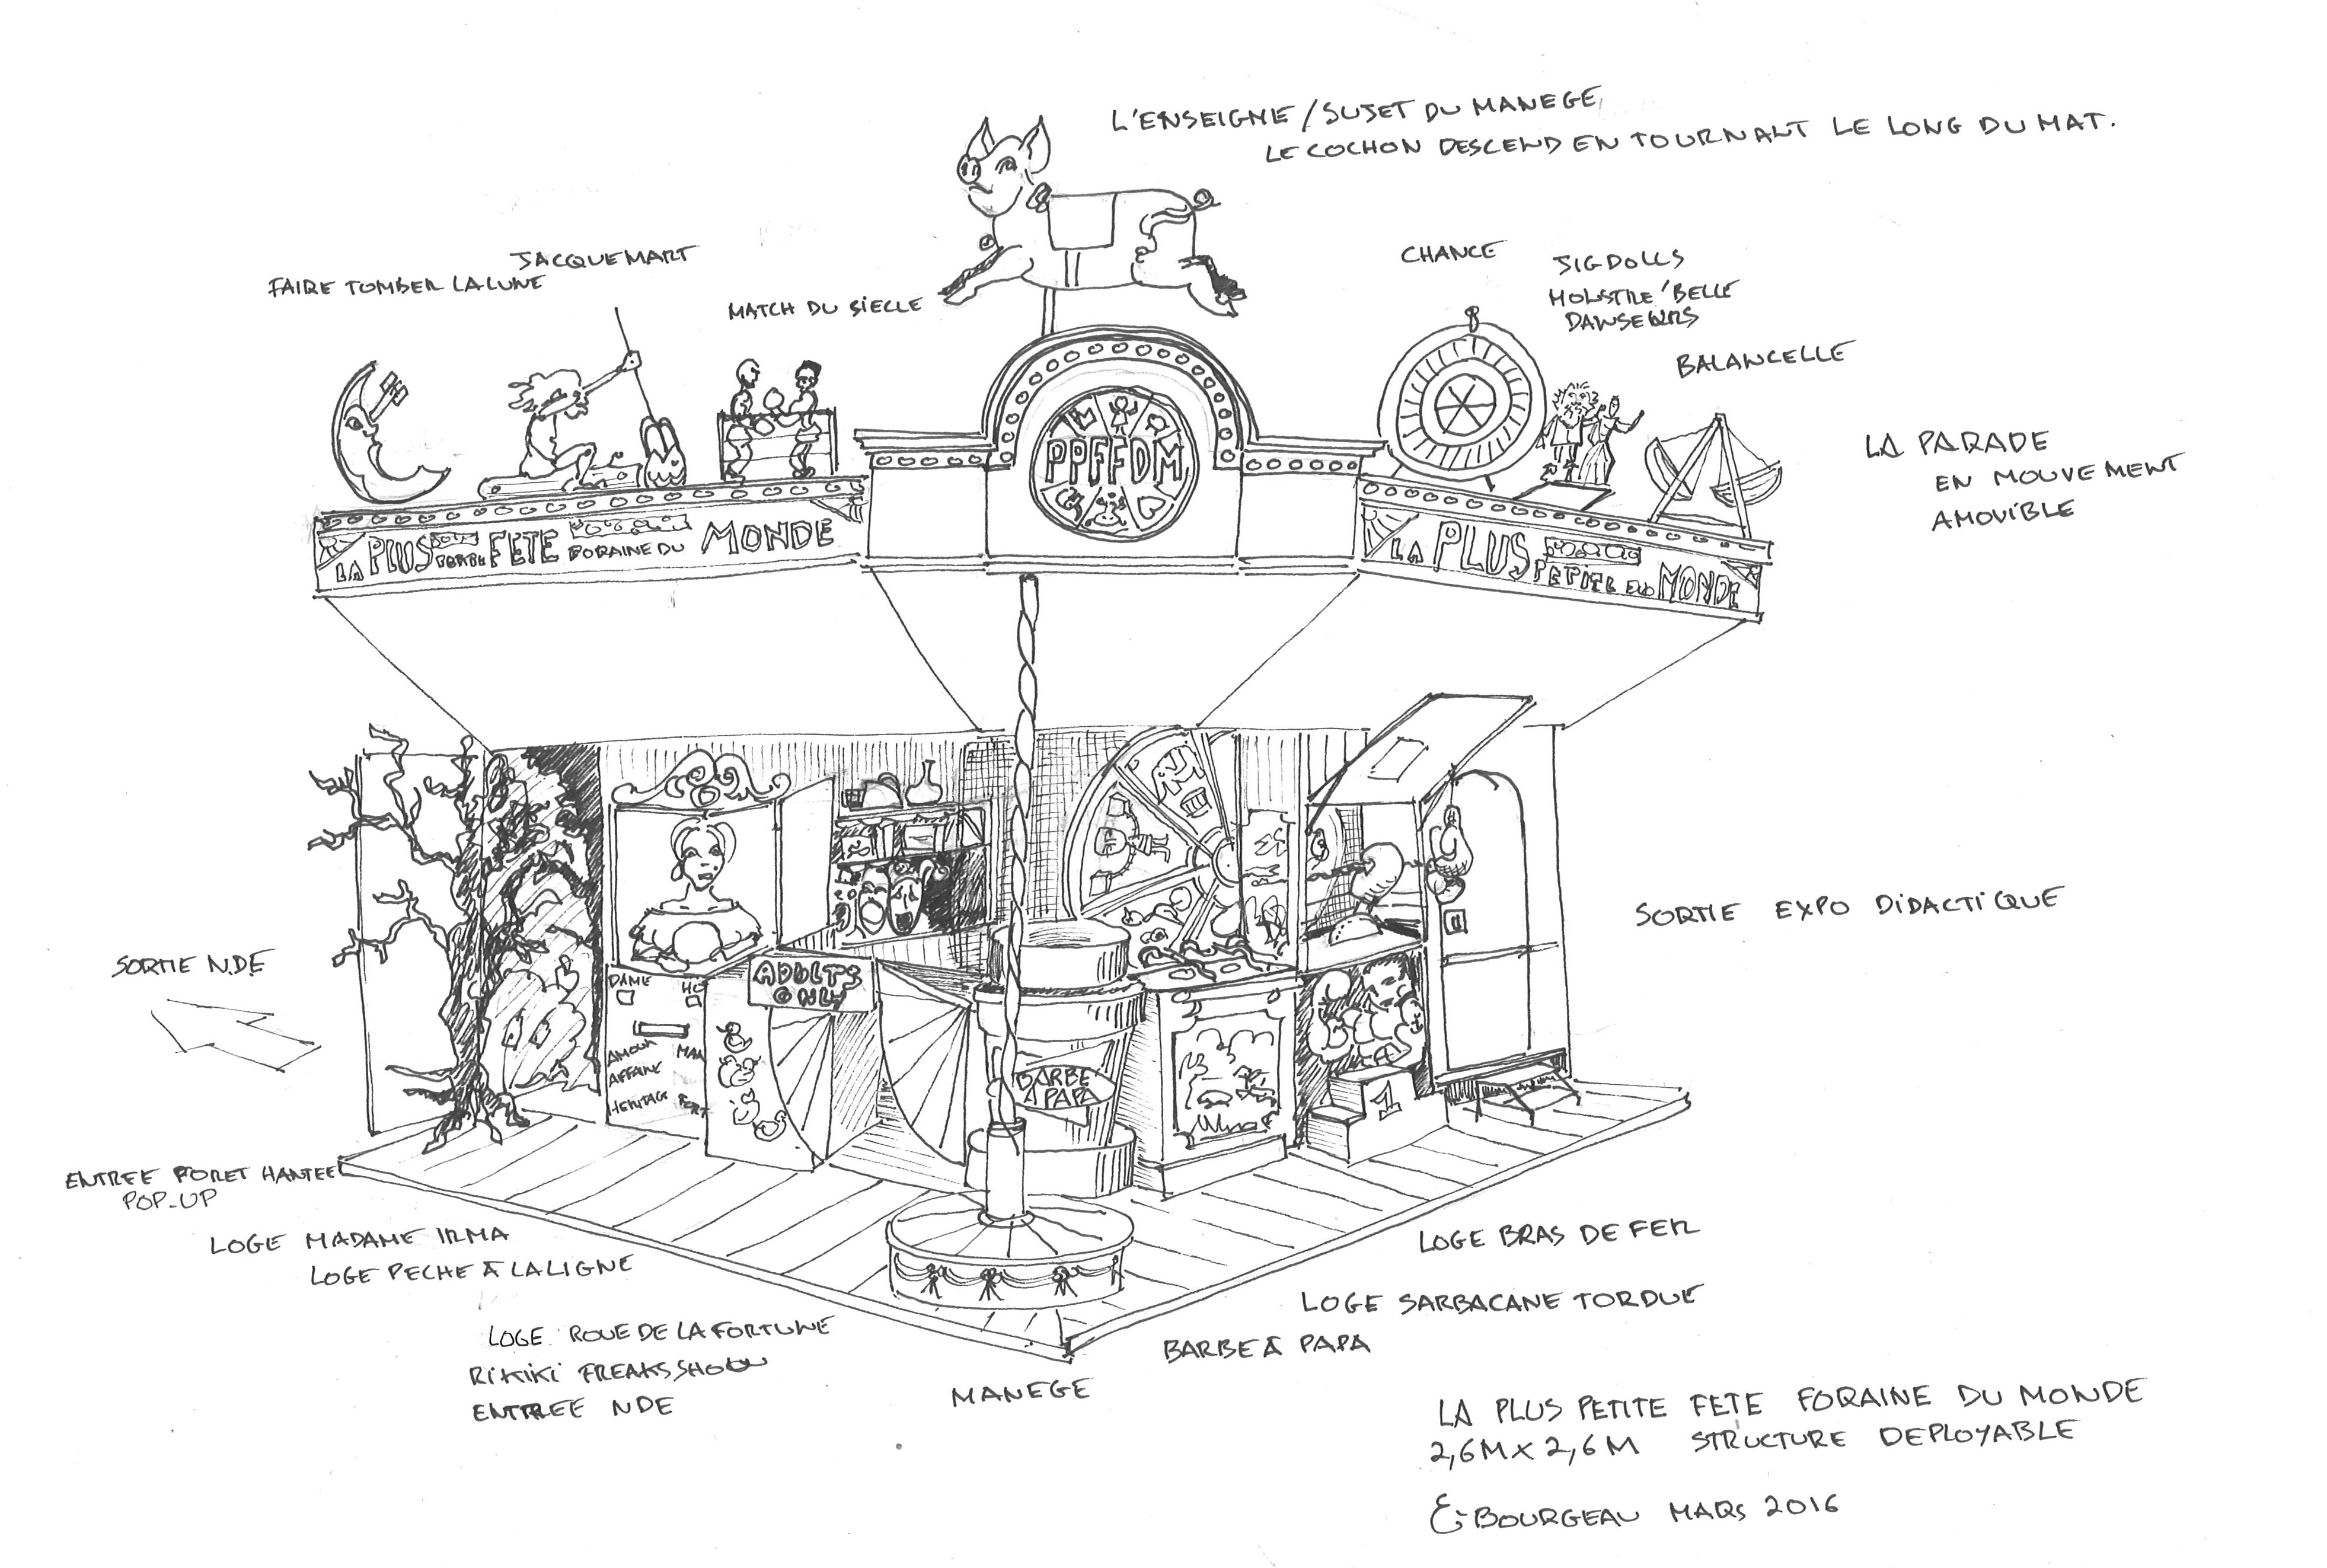 L'ENSEIGNE / SUJET DU MANEGE
LE COCHON DESCEND EN TOURNANT LE LONG DU MAT.
JACQUEMART
FAIRE TOMBER LA LUNE
MATCH DU SIECLE
CHANCE
JIGDOLLS
MONSTRE / BELLE
DANSEURS
BALANCELLE
LA PARADE
EN MOUVEMENT
AMOVIBLE
PPFFDM
LA PLUS PETITE FETE FORAINE DU MONDE
LA PLUS PETITE DU MONDE
SORTIE EXPO DIDACTIQUE
SORTIE N.DE
ADULTS
ONLY
DAME
AMOUR
AFFAIRE
HERITAGE
BARBE
A PAPA
1
ENTREE FORET HANTEE
POP-UP
LOGE MADAME IRMA
LOGE PECHE A LA LIGNE
LOGE ROUE DE LA FORTUNE
RIKIKI FREAKS SHOW
ENTREE NDE
MANEGE
BARBE A PAPA
LOGE SARBACANE TORDUE
LOGE BRAS DE FER
LA PLUS PETITE FETE FORAINE DU MONDE
2,6M X 2,6M STRUCTURE DEPLOYABLE
BOURGEAU MARS 2016